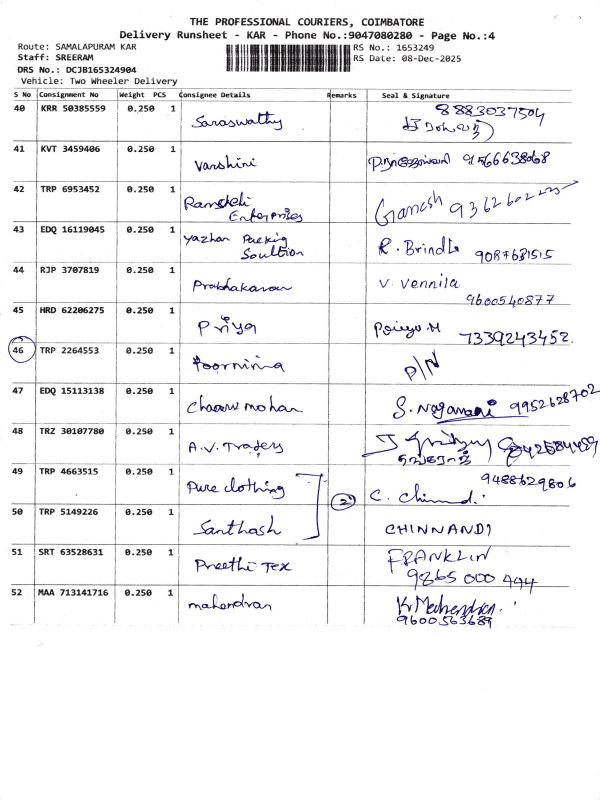 THE PROFESSIONAL COURIERS, COIMBATORE
Delivery Runsheet - KAR - Phone No.:9047080280 - Page No.:4
Route: SAMALAPURAM KAR RS No.: 1653249
Staff: SREERAM RS Date: 08-Dec-2025
DRS No.: DCJB165324904
Vehicle: Two Wheeler Delivery
S No Consignment No Weight PCS Consignee Details Remarks Seal & Signature
40 KRR 50385559 0.250 1 Saraswathy 8883037504
41 KVT 3459406 0.250 1 Varshini 9566638068
42 TRP 6953452 0.250 1 Enterprises Ganesh
43 EDQ 16119045 0.250 1 Yazhan Packing R. Brindha
Soultion 9087631515
44 RJP 3707819 0.250 1 Prabhakaran V. Vennila
9600540877
45 HRD 62206275 0.250 1 Priya 7339243452
46 TRP 2264553 0.250 1 Poornima P/N
47 EDQ 15113138 0.250 1 Charumohan S. Nagamani 9952628702
48 TRZ 30107780 0.250 1 A.V. Traders
49 TRP 4663515 0.250 1 Pure clothing 2 9488629806
50 TRP 5149226 0.250 1 Santhosh CHINNANDI
51 SRT 63528631 0.250 1 Preethi Tex FRANKLIN
9865 000 444
52 MAA 713141716 0.250 1 mahendran K. Mahendran
9600563689